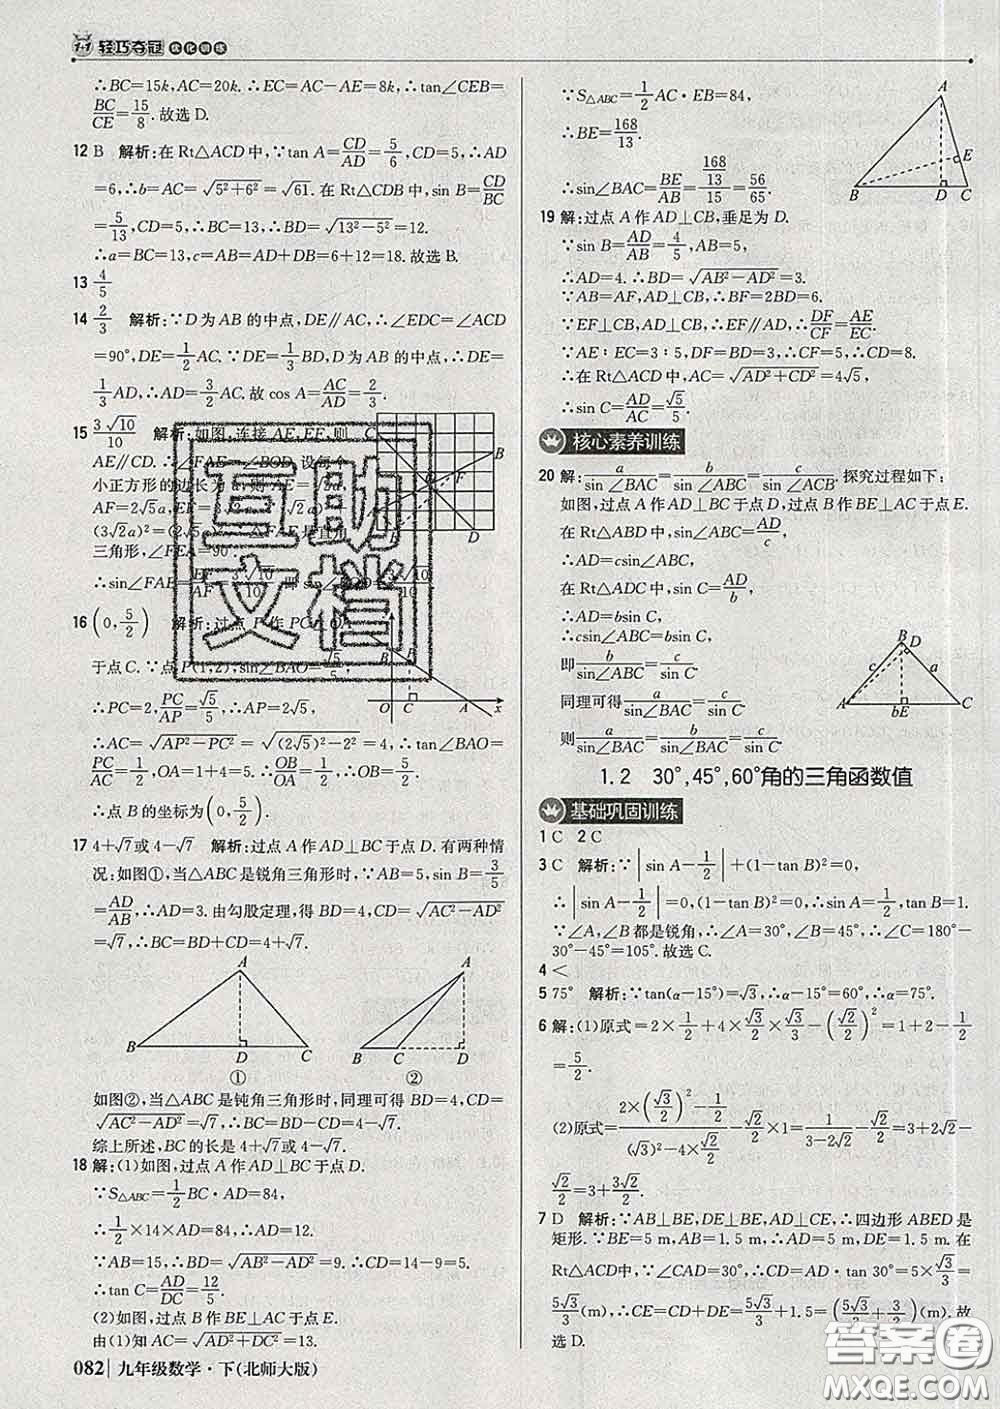 1+1 轻巧夺冠 优化训练
∴BC=15k,AC=20k.∴EC=AC-AE=8k,∴tan∠CEB=
BC/CE=15/8.故选D.
12 B 解析:在Rt△ACD中,∵tan A=CD/AD=5/6,CD=5,∴AD
=6,∴b=AC=√(5²+6²)=√61.在Rt△CDB中,sin B=CD/BC
=5/13,CD=5,∴BC=13,∴BD=√(13²-5²)=12.
∴a=BC=13,c=AB=AD+DB=6+12=18.故选B.
13 4/5
14 2/3 解析:∵D为AB的中点,DE∥AC,∴∠EDC=∠ACD
=90°,DE=1/2AC.∵DE=1/3BD,D为AB的中点,∴DE=
1/3AD,∴AD=3/2AC.故cos A=AC/AD=2/3.
15 3√10/10 解析:如图,连接AE,EF,则
AE∥CD.∴∠FAE=∠BOD.设每个
小正方形的边长为a,则AE=√2a,
AF=2√5a,EF=3√2a
(3√2a)²=(2√5a)²,∴△FAE是直角
三角形,∠FEA=90°.
∴sin∠FAE=EF/AF=3√10/10,即 3√10/10
C B F D
16 (0,5/2) 解析:过点P作PC⊥OA
于点C.∵点P(1,2),sin∠BAO=√5/5,
∴PC=2,PC/AP=√5/5,∴AP=2√5,
B P O C A x
∴AC=√(AP²-PC²)=√((2√5)²-2²)=4,∴tan∠BAO=
PC/AC=1/2,OA=1+4=5.∴OB/OA=1/2,∴OB=5/2.
∴点B的坐标为(0,5/2).
17 4+√7或4-√7 解析:过点A作AD⊥BC于点D.有两种情
况:如图①,当△ABC是锐角三角形时,∵AB=5,sin B=3/5
=AD/AB,∴AD=3.由勾股定理,得BD=4,CD=√(AC²-AD²)
=√7,∴BC=BD+CD=4+√7.
A B D C ①
A B C D ②
如图②,当△ABC是钝角三角形时,同理可得BD=4,CD=
√(AC²-AD²)=√7,∴BC=BD-CD=4-√7.
综上所述,BC的长是4+√7或4-√7.
18 解:(1)如图,过点A作AD⊥BC于点D.
∵S△ABC=1/2BC·AD=84,
∴1/2×14×AD=84,∴AD=12.
∵AB=15,∴BD=√(AB²-AD²)=9.∴CD=14-9=5.
∴tan C=AD/DC=12/5.
(2)如图,过点B作BE⊥AC于点E.
由(1)知AC=√(AD²+DC²)=13.
082 九年级数学·下(北师大版)
∵S△ABC=1/2AC·EB=84,
∴BE=168/13.
∴sin∠BAC=BE/AB=(168/13)/15=56/65.
A E B D C
19 解:过点A作AD⊥CB,垂足为D.
∵sin B=AD/AB=4/5,AB=5,
∴AD=4.∴BD=√(AB²-AD²)=3.
∵AB=AF,AD⊥CB,∴BF=2BD=6.
∵EF⊥CB,AD⊥CB,∴EF∥AD,∴DF/CF=AE/EC.
∵AE∶EC=3∶5,DF=BD=3,∴CF=5,∴CD=8.
∴在Rt△ADC中,AC=√(AD²+CD²)=4√5,
∴sin C=AD/AC=√5/5.
核心素养训练
20 解:a/sin∠BAC=b/sin∠ABC=c/sin∠ACB.探究过程如下:
如图,过点A作AD⊥BC于点D,过点B作BE⊥AC于点E.
在Rt△ABD中,sin∠ABC=AD/c,
∴AD=csin∠ABC,
在Rt△ADC中,sin C=AD/b,
∴AD=bsin C,
∴csin∠ABC=bsin C,
即b/sin∠ABC=c/sin C.
同理可得a/sin∠BAC=c/sin C.
则a/sin∠BAC=b/sin∠ABC=c/sin C.
B D c a A bE C
1.2 30°,45°,60°角的三角函数值
基础巩固训练
1 C 2 C
3 C 解析:∵|sin A-1/2|+(1-tan B)²=0,
∴|sin A-1/2|=0,(1-tan B)²=0,∴sin A=1/2,tan B=1.
∵∠A,∠B都是锐角,∴∠A=30°,∠B=45°,∴∠C=180°-
30°-45°=105°.故选C.
4 <
5 75° 解析:∵tan(α-15°)=√3,∴α-15°=60°,∴α=75°.
6 解:(1)原式=2×1/2+4×√3/2×√3/2-(√2/2)²=1+2-1/2
=5/2.
(2)原式=(2×(√3/2)²-1/2)/((√3)²-4×√2/2)-√2/2×1=1/(3-2√2)-√2/2=3+2√2-
√2/2=3+3√2/2.
7 D 解析:∵AB⊥BE,DE⊥BE,AD⊥CE,∴四边形ABED是
矩形.∵BE=5 m,AB=1.5 m,∴AD=5 m,DE=1.5 m.在
Rt△ACD中,∵∠CAD=30°,∴CD=AD·tan 30°=5×√3/3=
5√3/3(m),∴CE=CD+DE=5√3/3+1.5=(5√3/3+3/2)(m).故
选D.
互助
文档
答案圈
MXQE.COM